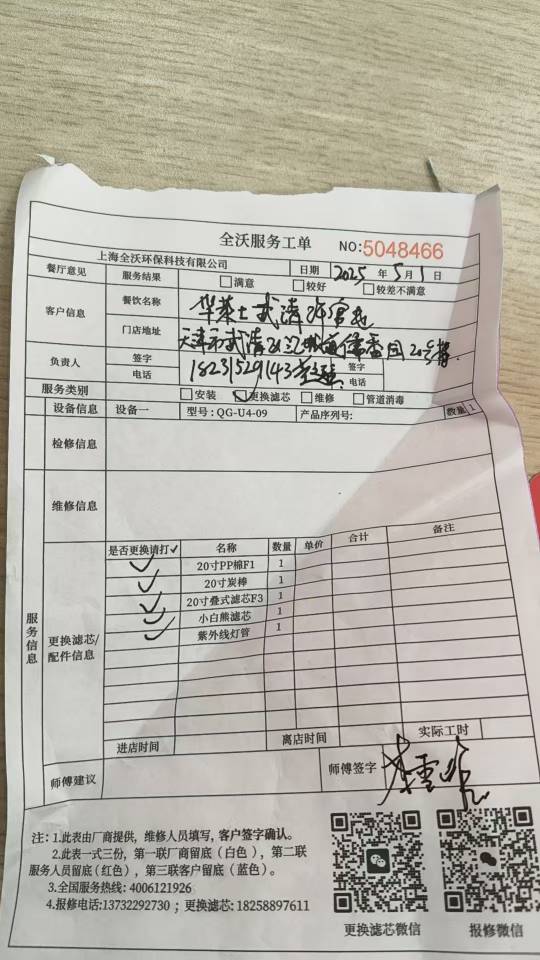 全沃服务工单 NO:5048466
上海全沃环保科技有限公司 日期 2025 年 5 月 1 日
餐厅意见 服务结果 满意 较好 较差不满意
客户信息 餐饮名称 华莱士武清
门店地址 天津市武清区 20号
负责人 签字 签字
电话 18231529143 电话
服务类别 安装 更换滤芯 维修 管道消毒
设备信息 设备一 型号:QG-U4-09 产品序列号: 数量 1
检修信息
维修信息
服务信息
更换滤芯/配件信息
是否更换请打✓ 名称 数量 单价 合计 备注
✓ 20寸PP棉F1 1
✓ 20寸炭棒 1
✓ 20寸叠式滤芯F3 1
✓ 小白熊滤芯 1
✓ 紫外线灯管 1
进店时间 离店时间 实际工时
师傅建议 师傅签字
注:1.此表由厂商提供,维修人员填写,客户签字确认。
2.此表一式三份,第一联厂商留底(白色),第二联
服务人员留底(红色),第三联客户留底(蓝色)。
3.全国服务热线:4006121926
4.报修电话:13732292730;更换滤芯:18258897611
更换滤芯微信 报修微信